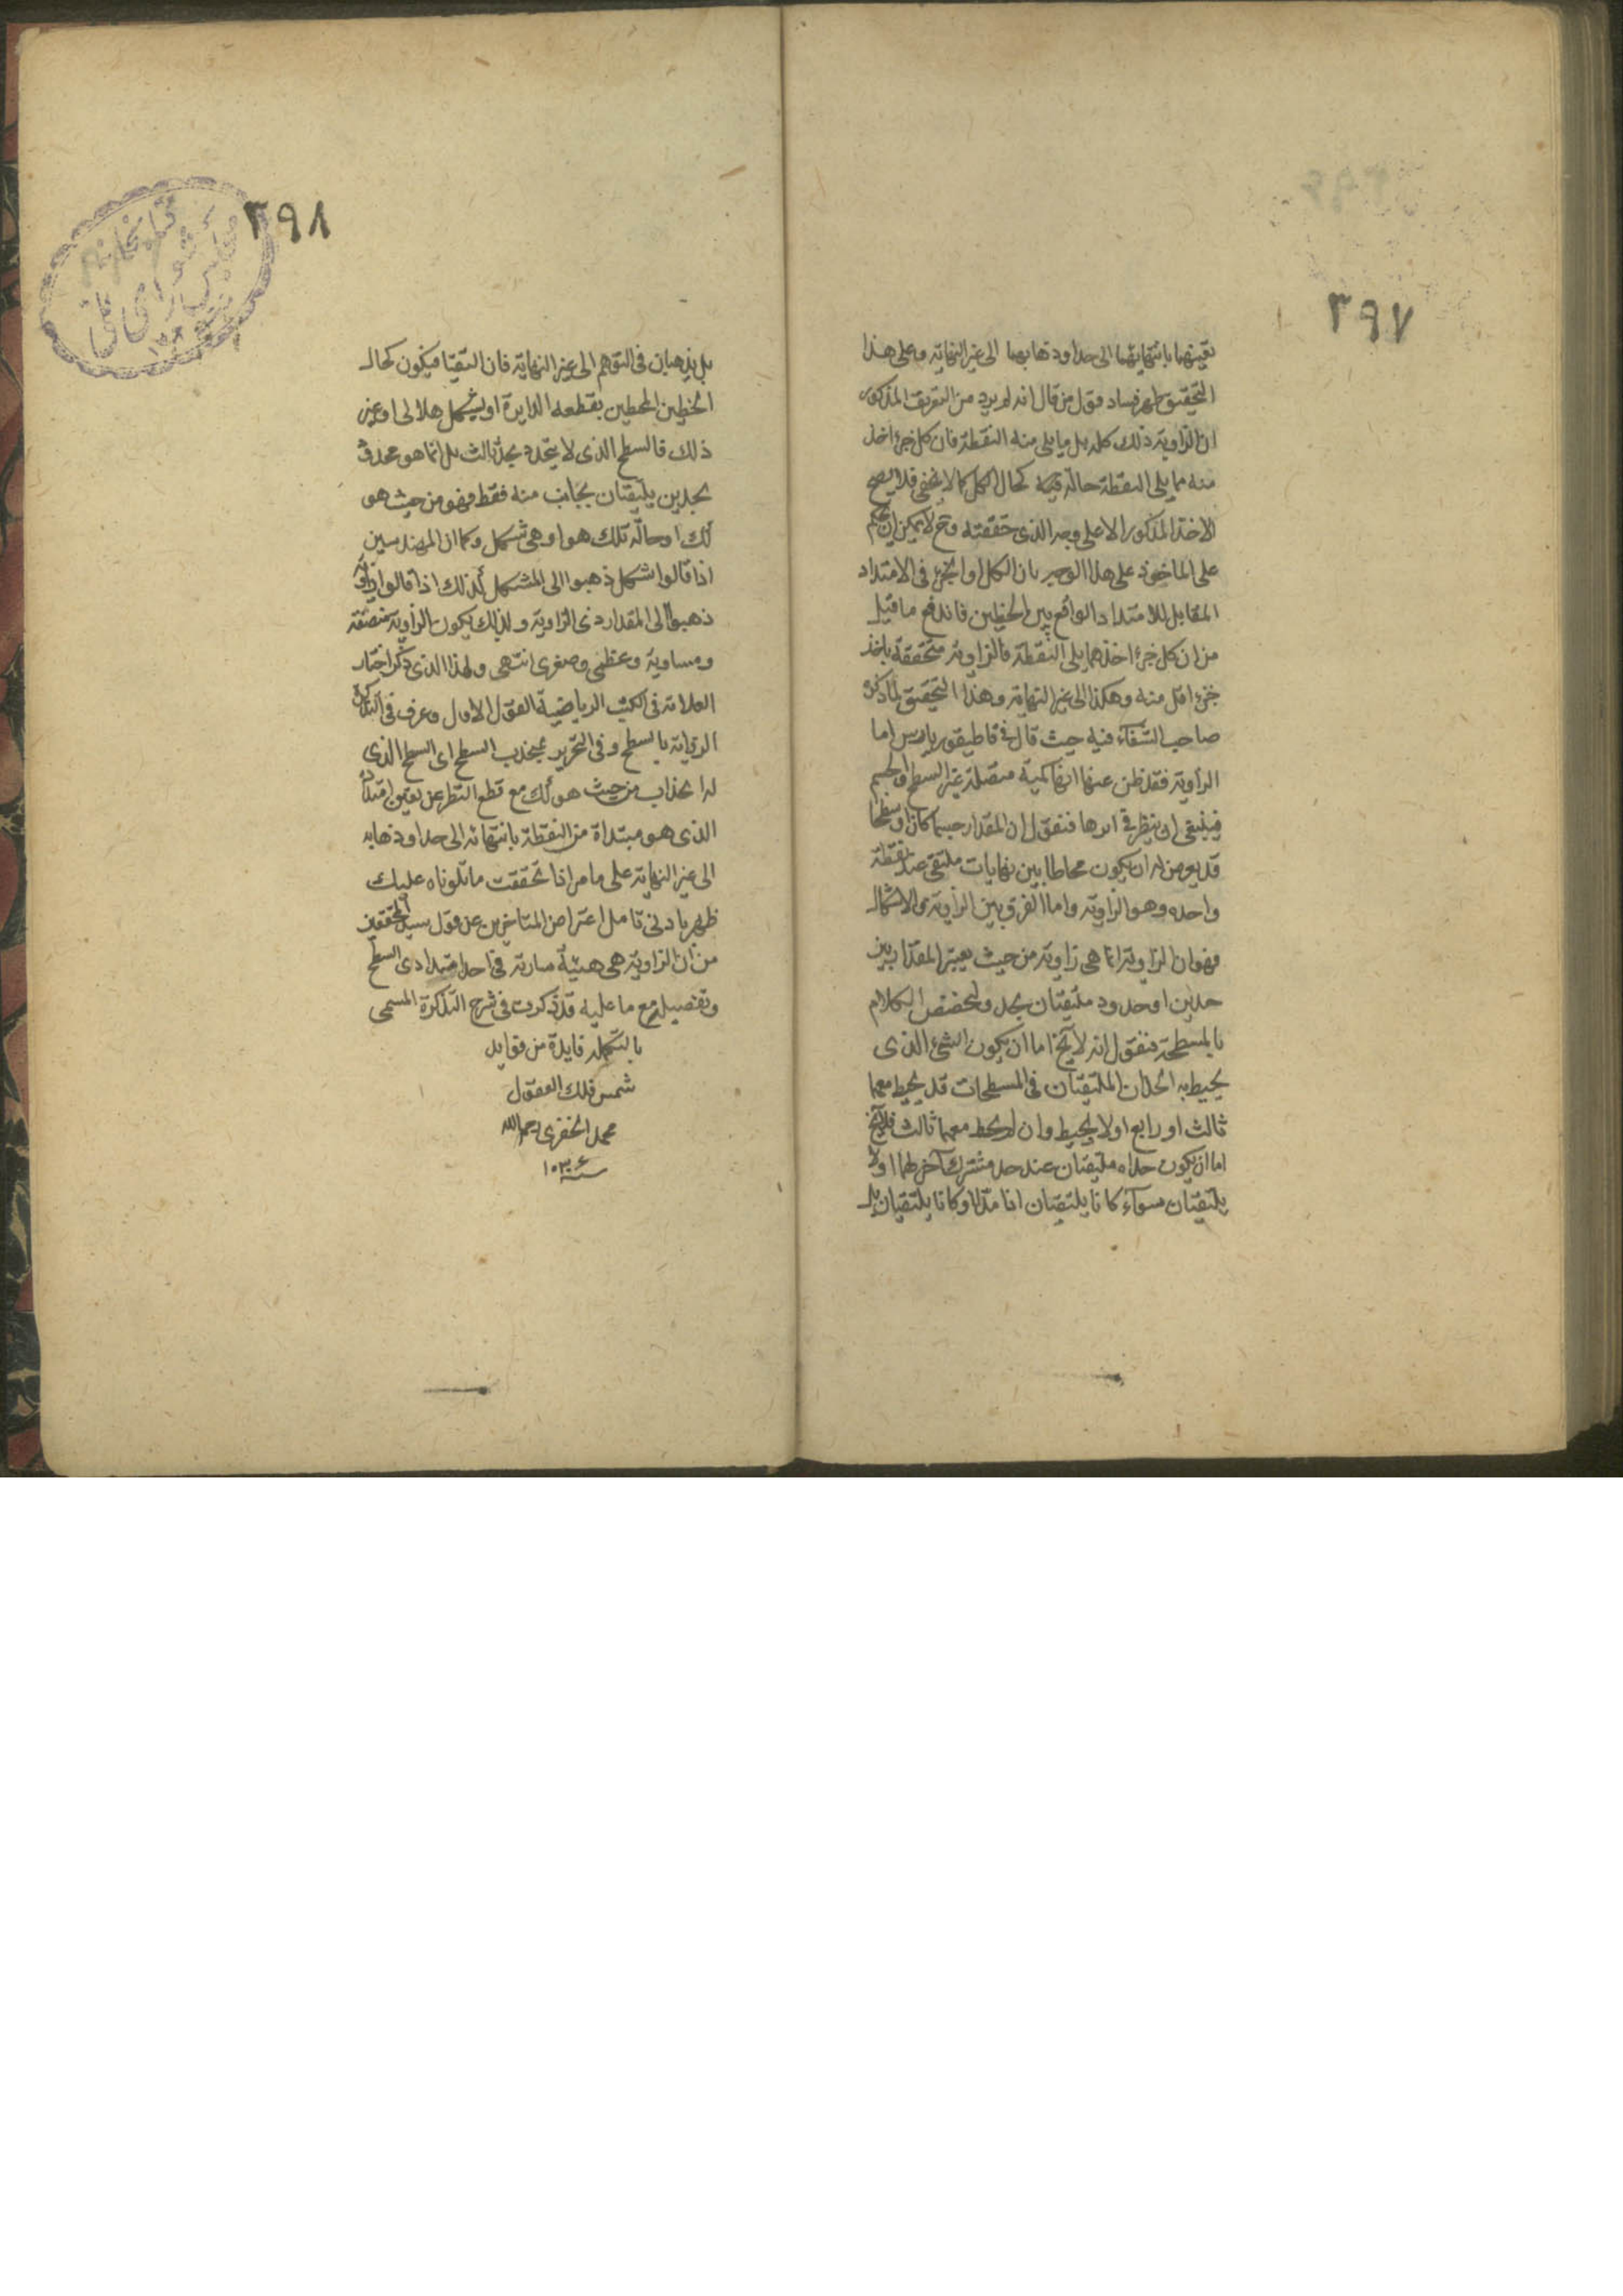 ٣٩٧
تعينهما بانتهائهما الى حد او ذهابهما الى غير النهاية وعلى هذا
التحقيق ظهر فساد قول من قال انه لم يرد من التعريف المذكور
ان الزاوية ذلك كله بل ما يلى منه النقطة فان كل جزء اخذ
منه مما يلى النقطة حاله فيه كحال الكل كما لا يخفى فلا يصح
الاخذ المذكور الا على وجه الذى حققته وح لا يمكن ان يحكم
على الماخوذ على هذا الوجه بان الكل او الجزء فى الامتداد
المقابل للامتداد الواقع بين الخطين فاندفع ما قيل
من ان كل جزء اخذ مما يلى النقطة فالزاوية متحققة باخذ
جزء اقل منه وهكذا الى غير النهاية وهذا التحقيق لما ذكره
صاحب الشفآء فيه حيث قال فى قاطيقورياس اما
الزاوية فقد ظن عنها انها كمية متصلة غير السطح والجسم
فينبغى ان ينظر فى امرها فنقول ان المقدار جسما كان او سطحا
قد يعرض له ان يكون محاطا بين نهايات ملتقى عند نقطة
واحده وهو الزاوية واما الفرق بين الزاوية والاشكال
فهو ان الزاوية انما هى زاوية من حيث يعتبر المقدار بين
حدين او حدود ملتقيان بحد ولنخصص الكلام
بالمسطحة فنقول انه لا يخ اما ان يكون الشئ الذى
يحيط به الحدان الملتقيان فى المسطحات قد يحيط معهما
ثالث او رابع اولا يحيط وان لم يحط معهما ثالث فلا يخ
اما ان يكون حداه ملتقيان عند حد مشترك آخر لهما اولا
يلتقيان سوآء كانا يلتقيان اذا مدا او كانا يلتقيان بل
٣٩٨
بل يذهبان فى التوهم الى غير النهاية فان التقيا فيكون كحال
الخطين المحيطين بقطعه الدايرة او بشكل هلالى او غير
ذلك فالسطح الذى لا يتحدد بحد ثالث بل انما هو محدود
بحدين يلتقيان بجانب منه فقط فهو من حيث هو
كك او حاله تلك هو او هى شكل وكما ان المهندسين
اذا قالوا شكل ذهبوا الى المشكل كذلك اذا قالوا زاوية
ذهبوا الى المقدار ذى الزاوية ولذلك يكون الزاوية منصفة
ومساوية وعظمى وصغرى انتهى ولهذا الذى ذكر اختار
العلامة فى الكتب الرياضية القول الاول وعرف فى التذكرة
الزاوية بالسطح وفى التحرير بمنحذب السطح اى السطح الذى
له انحذاب من حيث هو كك مع قطع النظر عن تعين امتداده
الذى هو مبتداة من النقطة بانتهائه الى حد او ذهابه
الى غير النهاية على ما مر اذا تحققت ما تلوناه عليك
ظهر بادنى تامل اعتراض المتاخرين عن قول سيد المحققين
من ان الزاوية هى هيئة سارية فى احد امتدادى السطح
وتفصيله مع ما عليه قد ذكرت فى شرح التذكرة المسمى
بالتكمله فايدة من فوايد
شمس فلك العقول
محمد الخفرى رحمه الله
سنة ١٠٣٤
كتابخانه
مجلس شوراى ملى